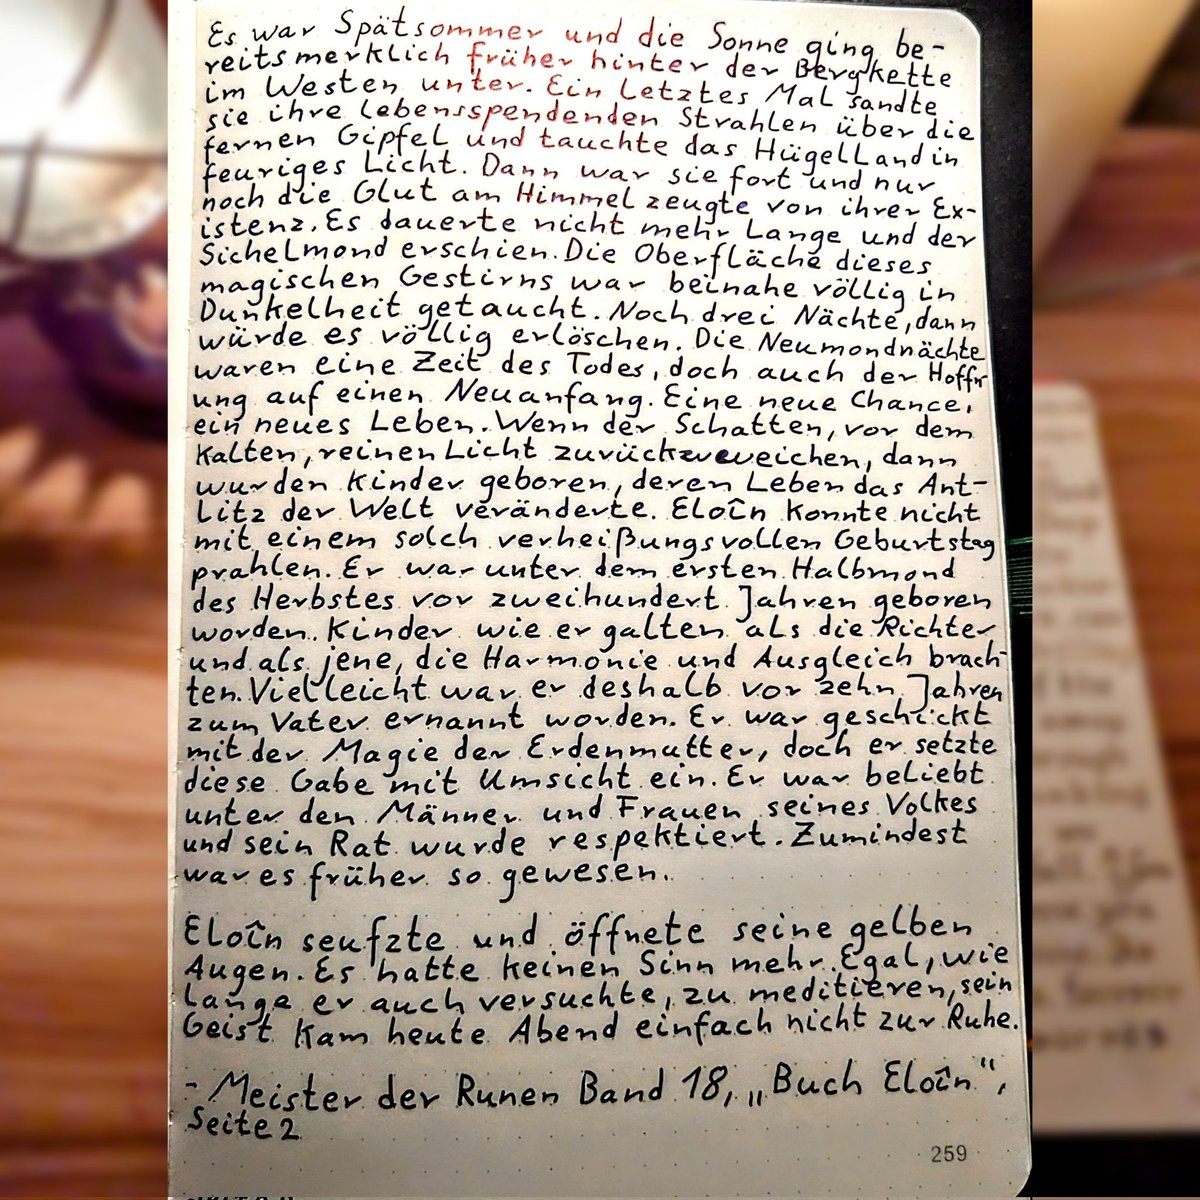 Es war Spätsommer und die Sonne ging be-
reits merklich früher hinter der Bergkette
im Westen unter. Ein letztes Mal sandte
sie ihre lebensspendenden Strahlen über die
fernen Gipfel und tauchte das Hügelland in
feuriges Licht. Dann war sie fort und nur
noch die Glut am Himmel zeugte von ihrer Ex-
istenz. Es dauerte nicht mehr lange und der
Sichelmond erschien. Die Oberfläche dieses
magischen Gestirns war beinahe völlig in
Dunkelheit getaucht. Noch drei Nächte, dann
würde es völlig erlöschen. Die Neumondnächte
waren eine Zeit des Todes, doch auch der Hoffn-
ung auf einen Neuanfang. Eine neue Chance,
ein neues Leben. Wenn der Schatten, vor dem
kalten, reinen Licht
dann
wurden Kinder geboren, deren Leben das Ant-
litz der Welt veränderte. Eloîn konnte nicht
mit einem solch verheißungsvollen Geburtstag
prahlen. Er war unter dem ersten Halbmond
des Herbstes vor zweihundert Jahren geboren
worden. Kinder wie er galten als die Richter
und als jene, die Harmonie und Ausgleich brach-
ten. Vielleicht war er deshalb vor zehn Jahren
zum Vater ernannt worden. Er war geschickt
mit der Magie der Erdenmutter, doch er setzte
diese Gabe mit Umsicht ein. Er war beliebt
unter den Männer und Frauen seines Volkes
und sein Rat wurde respektiert. Zumindest
war es früher so gewesen.
Eloîn seufzte und öffnete seine gelben
Augen. Es hatte keinen Sinn mehr. Egal, wie
lange er auch versuchte, zu meditieren, sein
Geist kam heute Abend einfach nicht zur Ruhe.
- Meister der Runen Band 18, „Buch Eloîn",
Seite 2
259